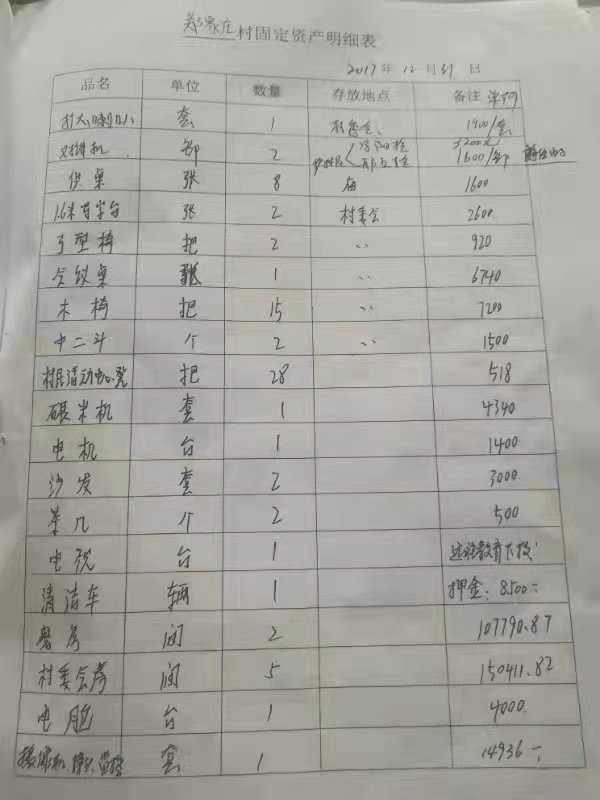 郑家庄村固定资产明细表
2017年12月31日
品名 单位 数量 存放地点 备注 单价
大喇叭 套 1 村委会 1900/套
对讲机 部 2 3200元 1600/部
供桌 张 8 庙 1600
1.6米写字台 张 2 村委会 2600
弓型椅 把 2 〃 920
会议桌 张 1 〃 6740
木椅 把 15 〃 7200
中二斗 个 2 〃 1500
村居活动 凳 把 28 518
碾米机 套 1 4340
电机 台 1 1400
沙发 套 2 3000
茶几 个 2 500
电视 台 1 远程教育下投
清洁车 辆 1 押金:8500-
磨房 间 2 107790.87
村委会房 间 5 150411.82
电脑 台 1 4000
摄像机 监控 套 1 14936-